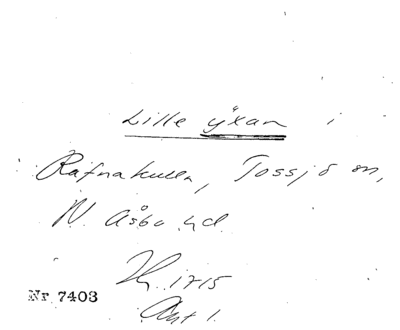 Lille yxan i
Rafnakulla, Tossjö sn,
N. Åsbo hd.
1715
Nr 7403
Akt 1.